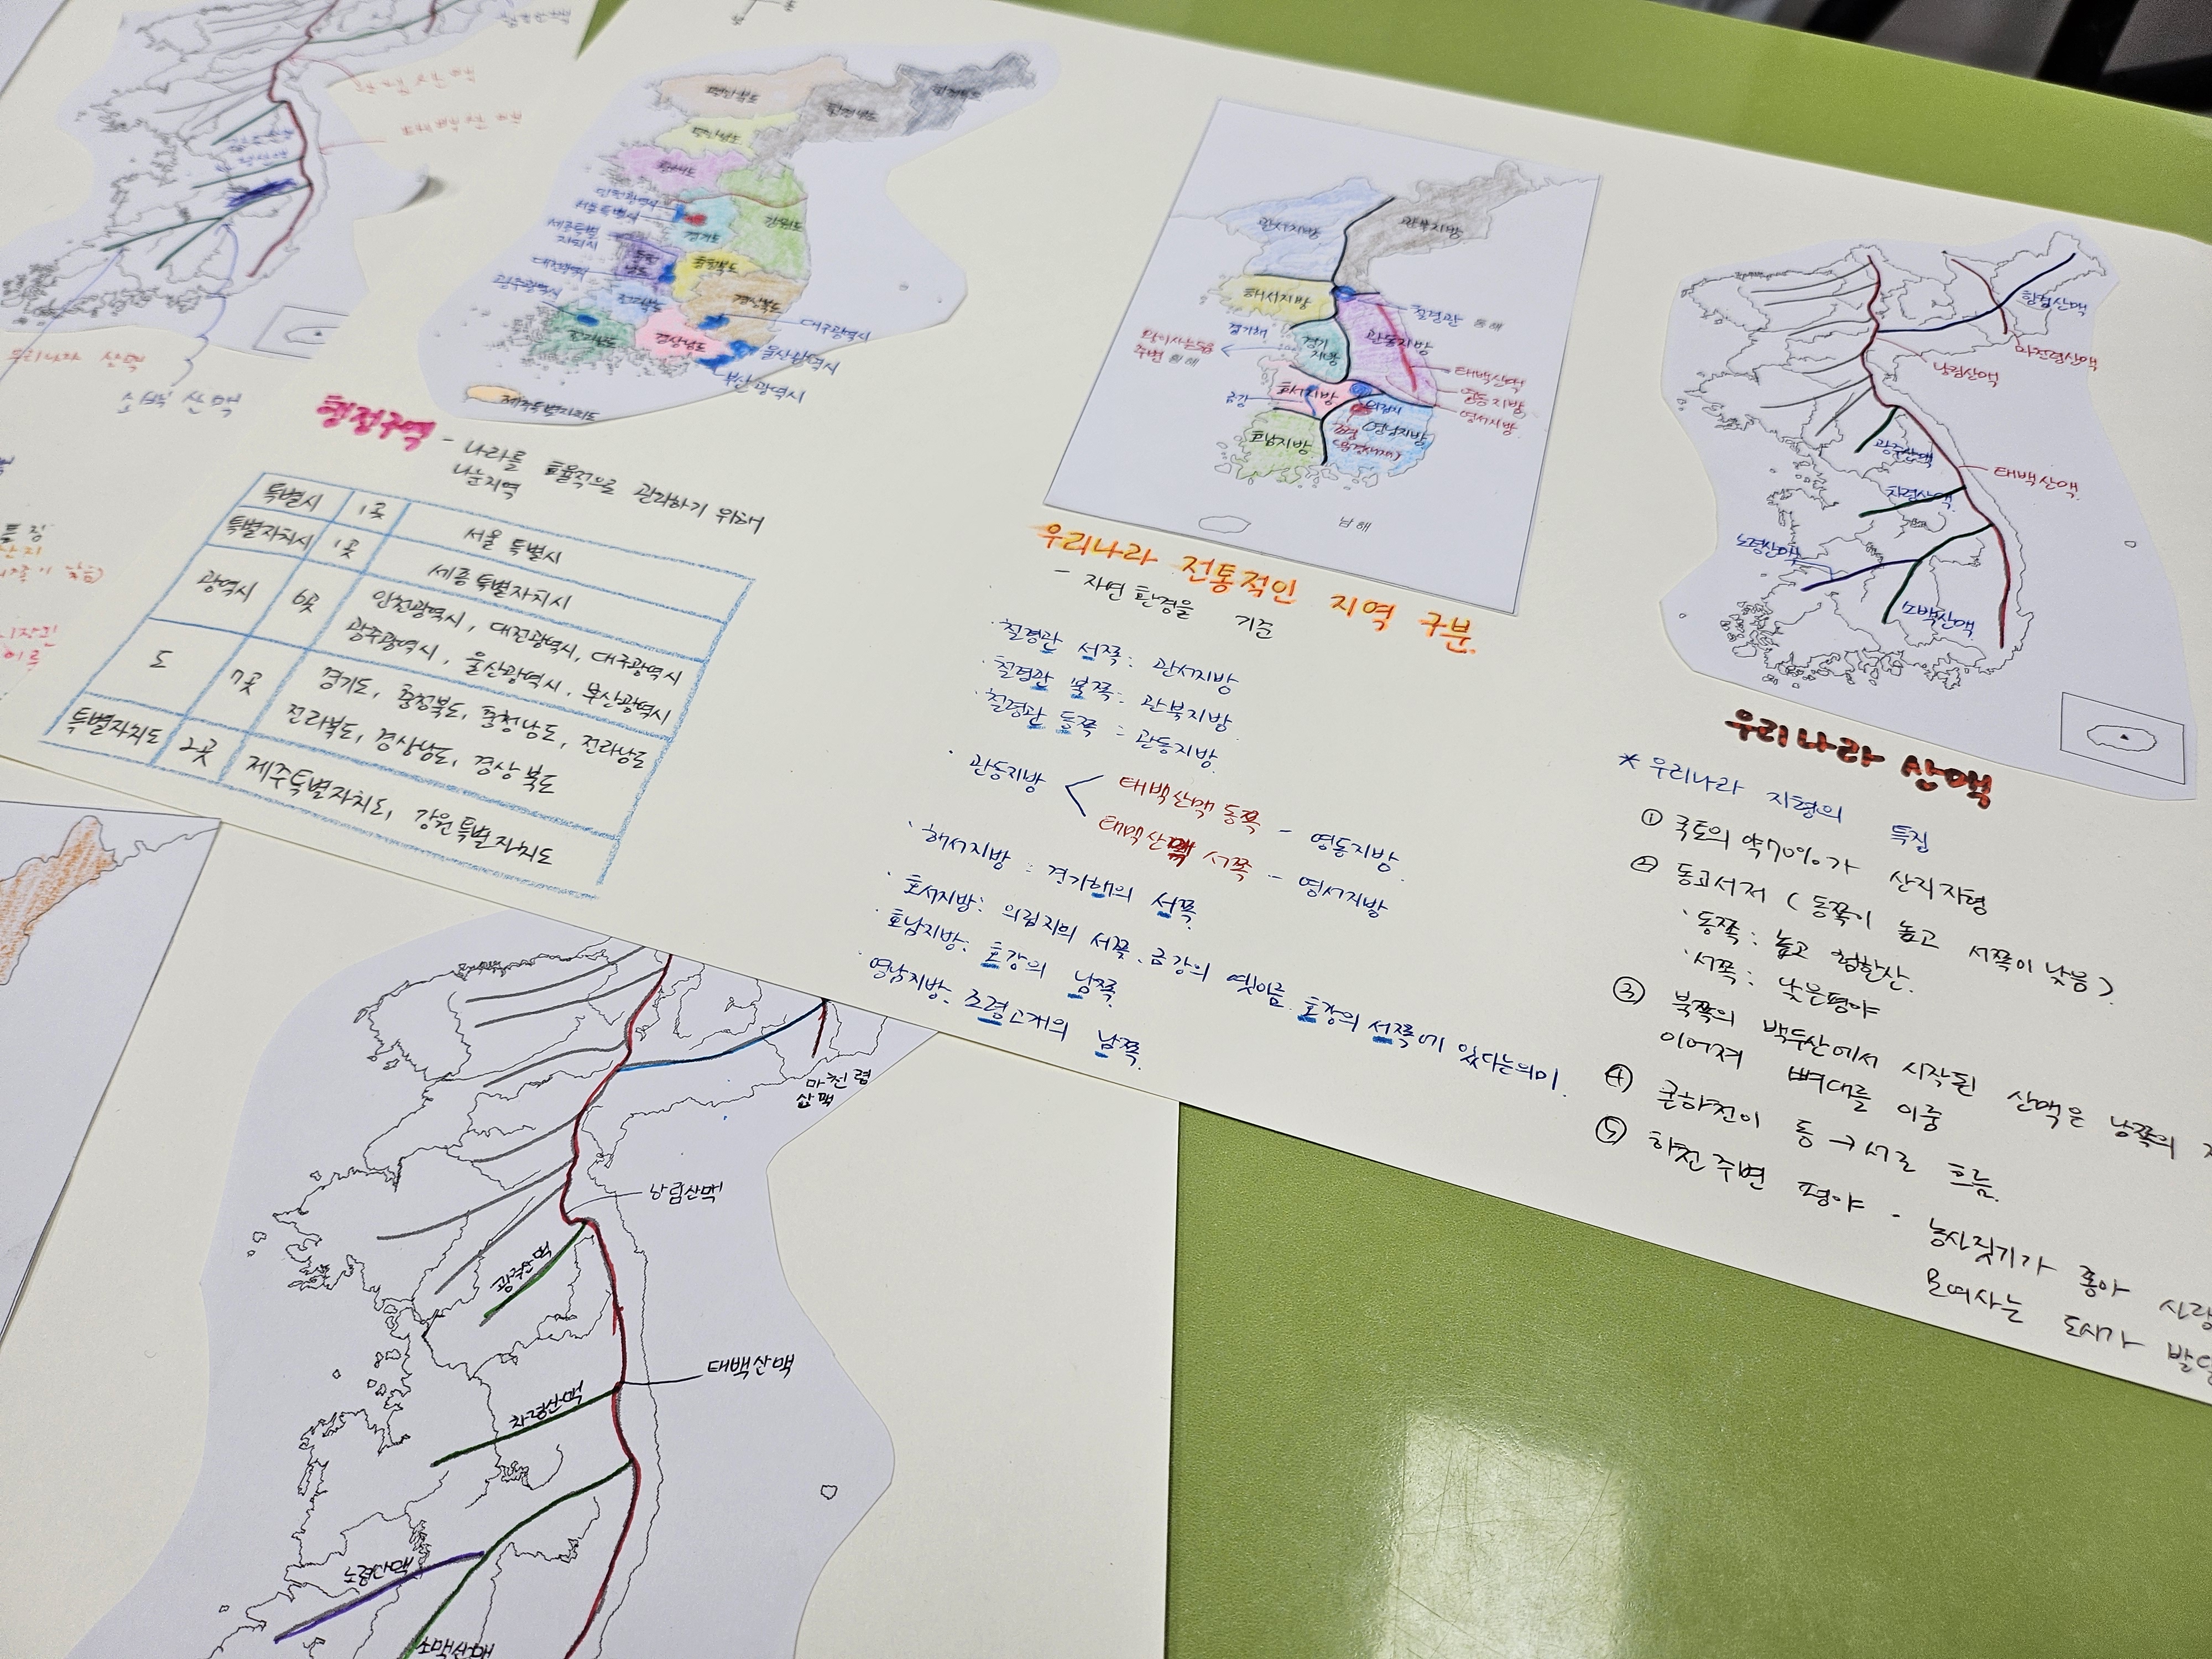 태백산맥
소백산맥
평안북도
함경남도
함경북도
평안남도
황해도
인천광역시
서울특별시
세종특별
자치시
경기도
강원도
충청
남도
충청북도
대전광역시
광주광역시
전라북도
경상북도
대구광역시
전라남도
경상남도
울산광역시
부산광역시
제주특별자치도
행정구역 - 나라를 효율적으로 관리하기 위해
나눈지역
특별시 1곳 서울 특별시
특별자치시 1곳 세종특별자치시
광역시 6곳 인천광역시, 대전광역시, 대구광역시
광주광역시, 울산광역시, 부산광역시
도 7곳 경기도, 충청북도, 충청남도, 전라남도
전라북도, 경상남도, 경상북도
특별자치도 2곳 제주특별자치도, 강원특별자치도
관서지방
관북지방
해서지방
철령관
동해
경기해
경기
지방
관동지방
태백산맥
영동지방
영서지방
호서지방
의림지
금강
호남지방
영남지방
남해
우리나라 전통적인 지역 구분.
- 자연환경을 기준
· 철령관 서쪽: 관서지방
· 철령관 북쪽: 관북지방
· 철령관 동쪽: 관동지방.
· 관동지방 < 태백산맥 동쪽 - 영동지방.
태백산맥 서쪽 - 영서지방
· 해서지방 : 경기해의 서쪽.
· 호서지방: 의림지의 서쪽, 금강의 옛이름 호강의 서쪽에 있다는의미.
· 호남지방: 호강의 남쪽.
영남지방: 조령고개의 남쪽.
함경산맥
마천령산맥
낭림산맥
광주산맥
태백산맥
차령산맥
노령산맥
소백산맥
우리나라 산맥
* 우리나라 지형의 특징
① 국토의 약70%가 산지지형
② 동고서저 (동쪽이 높고 서쪽이 낮음).
· 동쪽: 높고 험한산.
· 서쪽: 낮은평야
③ 북쪽의 백두산에서 시작된 산맥은 남쪽의
이어져 뼈대를 이룸
④ 큰하천이 동→서로 흐름.
⑤ 하천주변 평야 - 농사짓기가 좋아
모여사는 도시가
마천령
산맥
낭림산맥
광주산맥
태백산맥
차령산맥
노령산맥
소백산맥